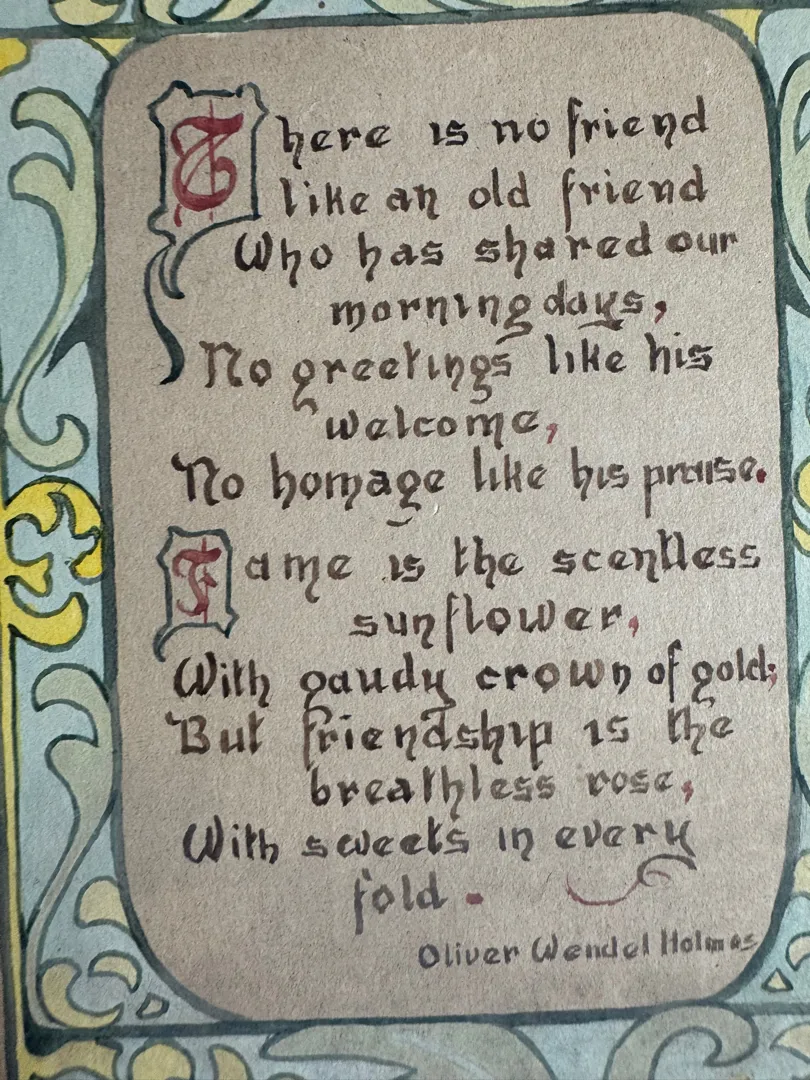 There is no friend
like an old friend
Who has shared our
morning days,
No greetings like his
welcome,
No homage like his praise.
Fame is the scentless
sunflower,
With gaudy crown of gold;
But friendship is the
breathless rose,
With sweets in every
fold.
Oliver Wendel Holmes